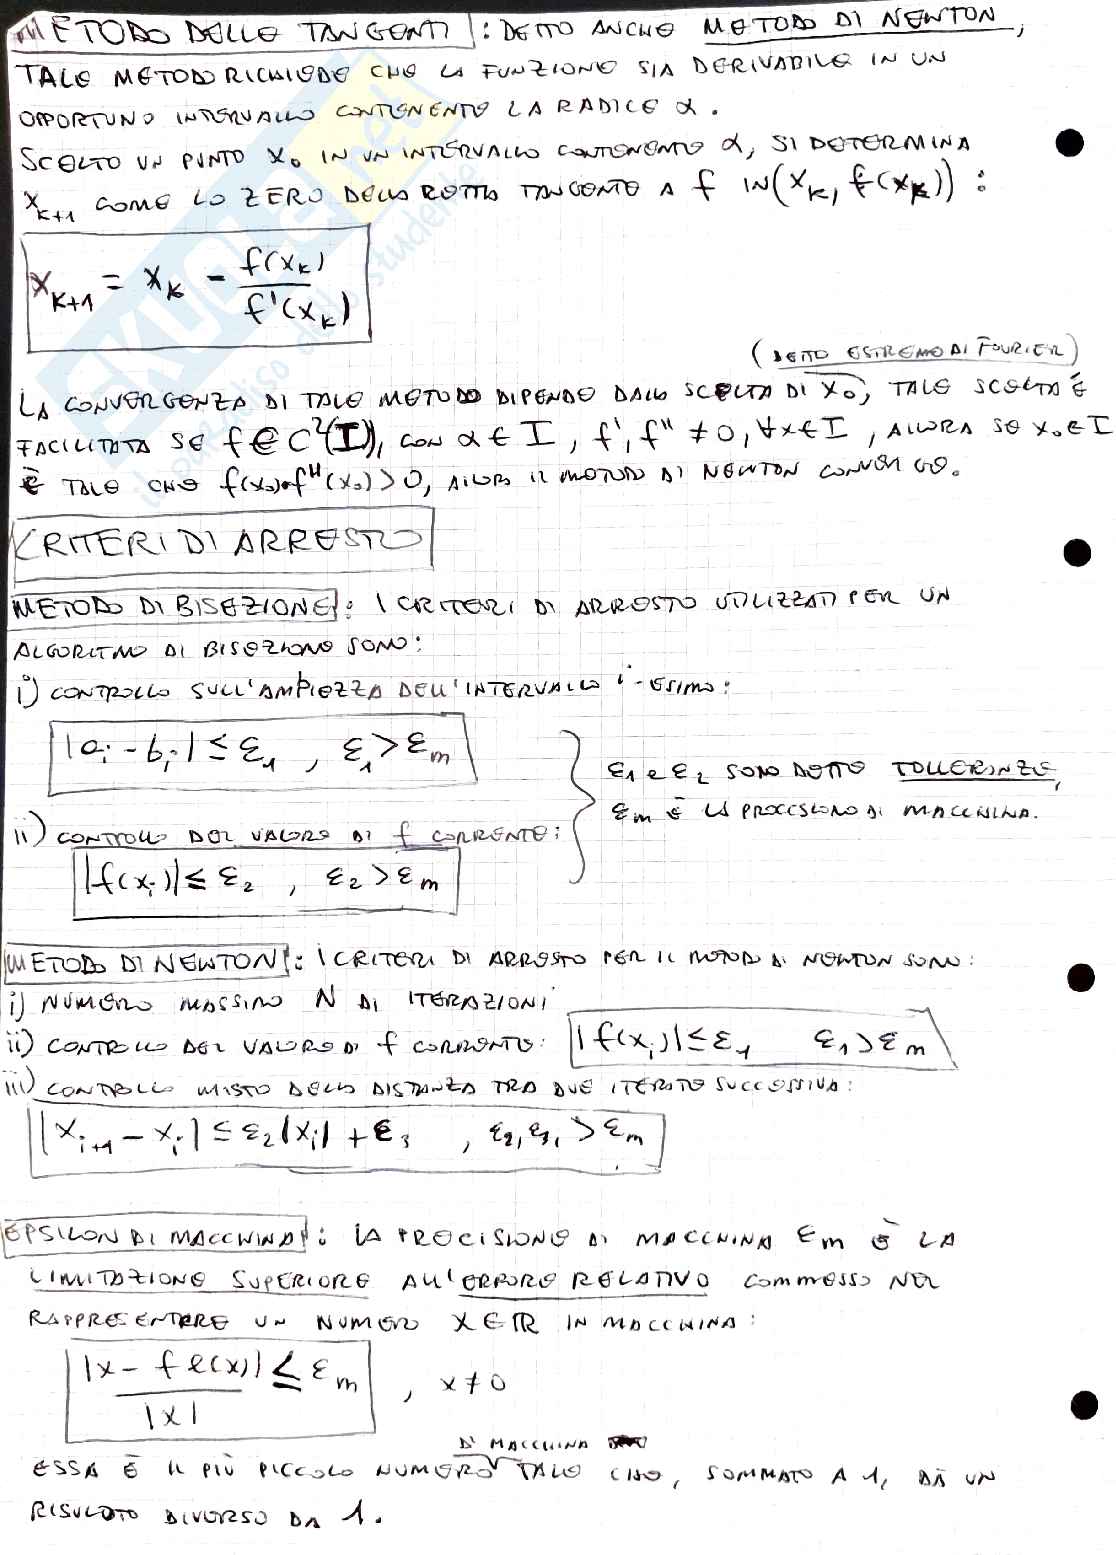 METODO DELLE TANGENTI : DETTO ANCHE METODO DI NEWTON,
TALE METODO RICHIEDE CHE LA FUNZIONE SIA DERIVABILE IN UN
OPPORTUNO INTERVALLO CONTENENTE LA RADICE α.
SCELTO UN PUNTO x₀ IN UN INTERVALLO CONTENENTE α, SI DETERMINA
x_{k+1} COME LO ZERO DELLA RETTA TANGENTE A f IN (x_k, f(x_k)) :
x_{k+1} = x_k - f(x_k) / f'(x_k)
(DETTO ESTREMO DI FOURIER)
LA CONVERGENZA DI TALE METODO DIPENDE DALLA SCELTA DI x₀, TALE SCELTA È
FACILITATA SE f ∈ C²(I), CON α ∈ I, f', f'' ≠ 0, ∀x ∈ I, ALLORA SE x₀ ∈ I
È TALE CHE f(x₀)•f''(x₀) > 0, ALLORA IL METODO DI NEWTON CONVERGE.
CRITERI DI ARRESTO
METODO DI BISEZIONE : I CRITERI DI ARRESTO UTILIZZATI PER UN
ALGORITMO DI BISEZIONE SONO:
i) CONTROLLO SULL'AMPIEZZA DELL'INTERVALLO i-ESIMO:
|a_i - b_i| ≤ ε₁ , ε₁ > ε_m
ε₁ e ε₂ SONO DETTE TOLLERANZE,
ε_m È LA PRECISIONE DI MACCHINA.
ii) CONTROLLO DEL VALORE DI f CORRENTE:
|f(x_i)| ≤ ε₂ , ε₂ > ε_m
METODO DI NEWTON : I CRITERI DI ARRESTO PER IL METODO DI NEWTON SONO:
i) NUMERO MASSIMO N DI ITERAZIONI
ii) CONTROLLO DEL VALORE DI f CORRENTE: |f(x_i)| ≤ ε₁ ε₁ > ε_m
iii) CONTROLLO MISTO DELLA DISTANZA TRA DUE ITERATE SUCCESSIVA:
|x_{i+1} - x_i| ≤ ε₂|x_i| + ε₃ , ε₂, ε₃, > ε_m
EPSILON DI MACCHINA : LA PRECISIONE DI MACCHINA ε_m È LA
LIMITAZIONE SUPERIORE ALL'ERRORE RELATIVO COMMESSO NEL
RAPPRESENTARE UN NUMERO x ∈ ℝ IN MACCHINA:
|x - fl(x)| / |x| ≤ ε_m , x ≠ 0
DI MACCHINA
ESSA È IL PIÙ PICCOLO NUMERO TALE CHE, SOMMATO A 1, DÀ UN
RISULTATO DIVERSO DA 1.